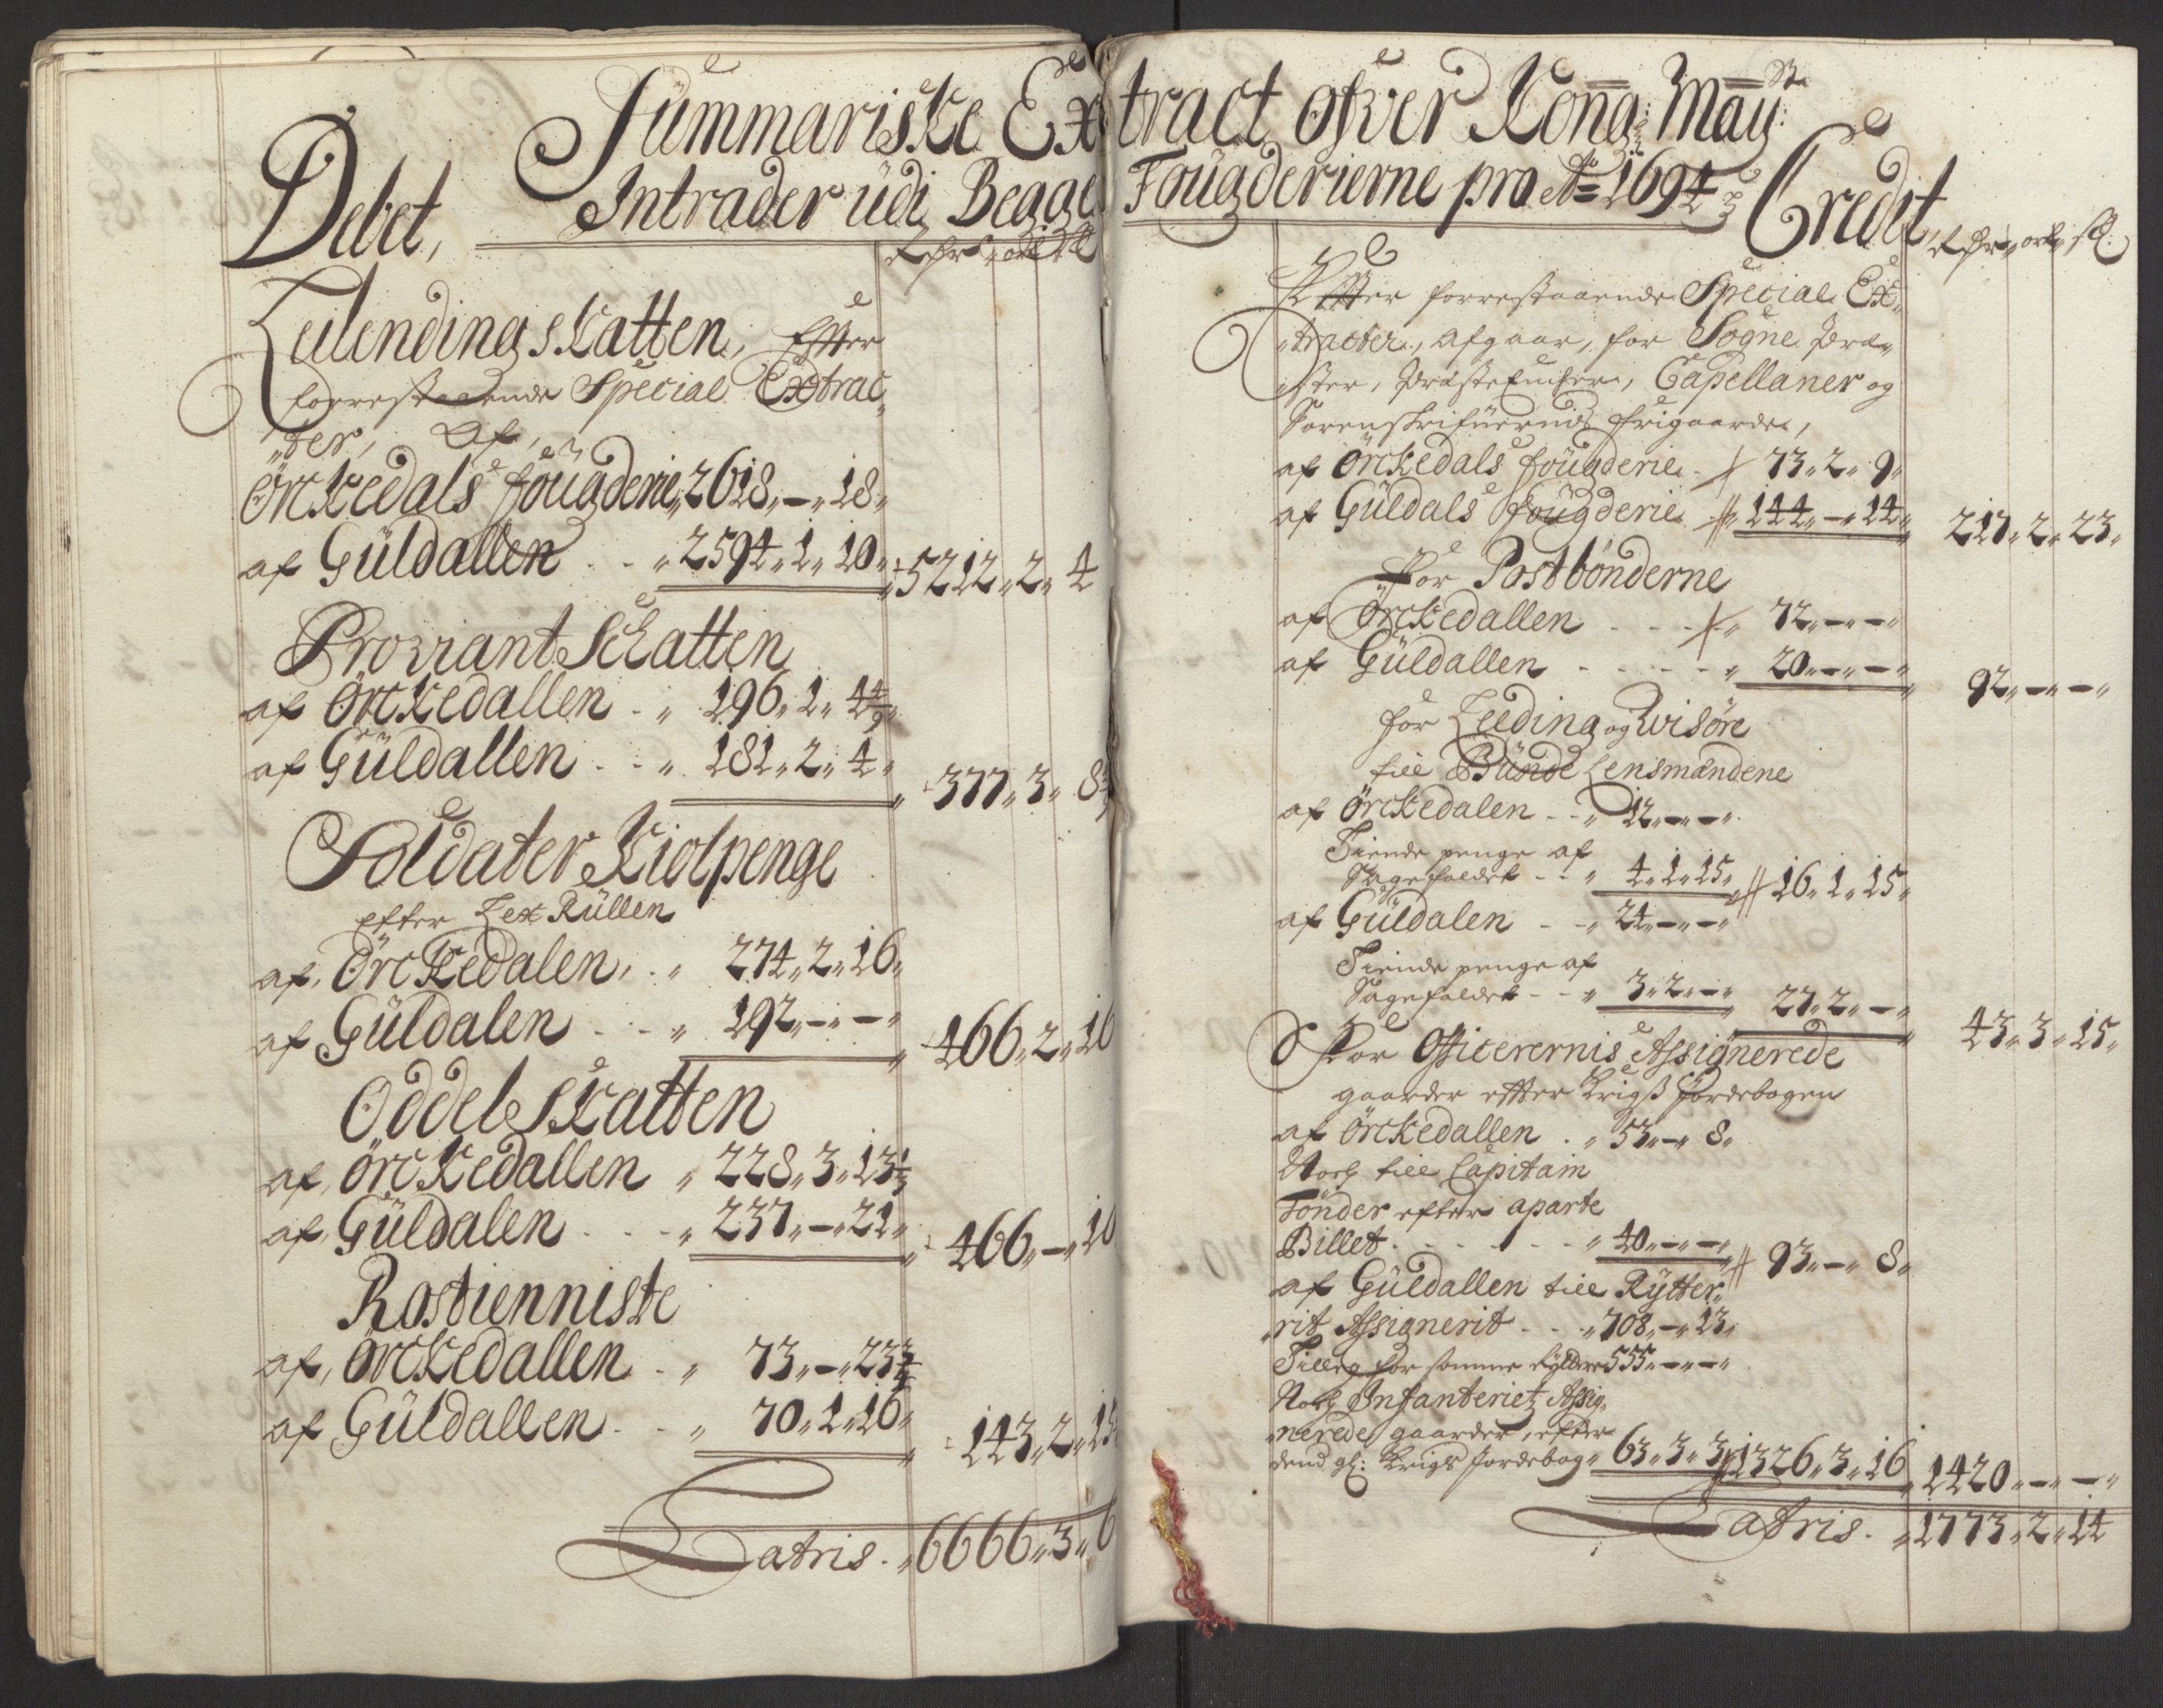 Summariske Extract ofver Kong: May:st
Debet, Intrader udi Begge Fougderierne pro Ao 1694 Credit
Leilendingskatten, Efter
forrestaaende Special Extrac
ter, Af,
Örckedals fougderie, 2618,,-,,18,,
af Güldallen . . ,,2594,,1,,10,, 5212,,2,,4
Proviant Skatten
af Örckedallen . ,, 196,,1,,4 4/9
af Güldallen . . ,, 181,,2,,4,, 377,,3,,8
Soldater Kiolpenge
efter Lex Rüllen
af, Örckedalen, . ,, 274,,2,,16,,
af Güldalen . . . ,, 192,,-,,-,, 466,,2,,16
Oddel Skatten
af, Örckedallen ,, 228,,3,,13 1/3
af, Güldalen . . . ,, 237,,-,,21,, 466,,-,,10
Rostienniste
af, Örckedallen . ,, 73,,-,,23
af Güldallen . . ,, 70,,1,,16,, 143,,2,,15
Latris . ,,6666,,3,,6
Rdr ort sk:
Efter forrestaaende Special Ex,,
tracter, afgaar, for Sogne Præ,,
ster, Præsteenker, Capellaner og
Sorenskrifuernis frigaarde,
af Örckedals fougderie . 73,,2,,9,,
af Güldals fougderie 144,,-,,14,, 217,,2,,23,,
For Postbönderne
af Örckedallen . . . ,, 72,,-,,-,,
af Güldallen . . . . . ,, 20,,-,,-,, 92,,-,,-,,
for Leeding og Wisöre
till Bunde Lensmændene
af Örckedalen . . ,, 12,,-,,-,,
Tiende penge af
Sagefaldet . . ,, 4,,1,,15,, 16,,1,,15,,
af Güldalen . . ,, 24,,-,,-,,
Tiende penge af
Sagefaldet . . ,, 3,,2,,-,, 27,,2,,-,, 43,,3,,15,,
For Officerernis Assignerede
gaarder efter Krigs Jordebogen
af Örckedallen . ,, 53,,-,,8,,
Noch till Capitain
Tönder efter aparte
Billet . . . . . . ,, 40,,-,,-,, 93,,-,,8,,
af Güldallen till Rytter,,
rit Assignerit . . . ,,708,,-,,13,,
Tilleg for samme 555,,-,,-,,
Noch Infanteriet Assig,,
nerede gaarder, efter
dend gl: Krigs Jordebog,, 63,,3,,3,, 1326,,3,,16 1420,,-,,-,,
Latris . ,,1773,,2,,14